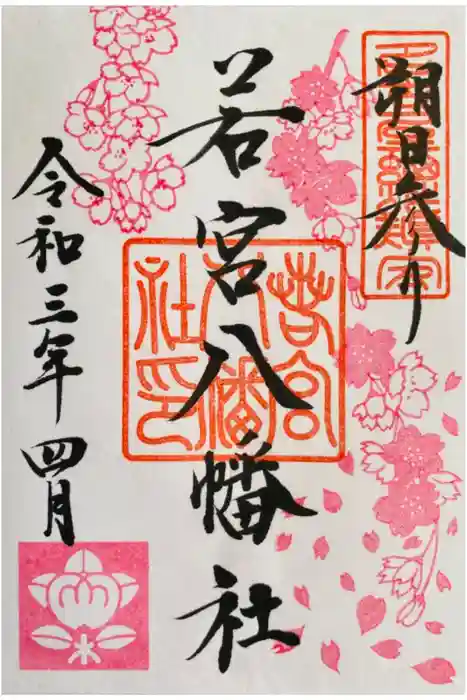 朔日参り
若宮八幡社
令和三年四月
若宮八幡社印